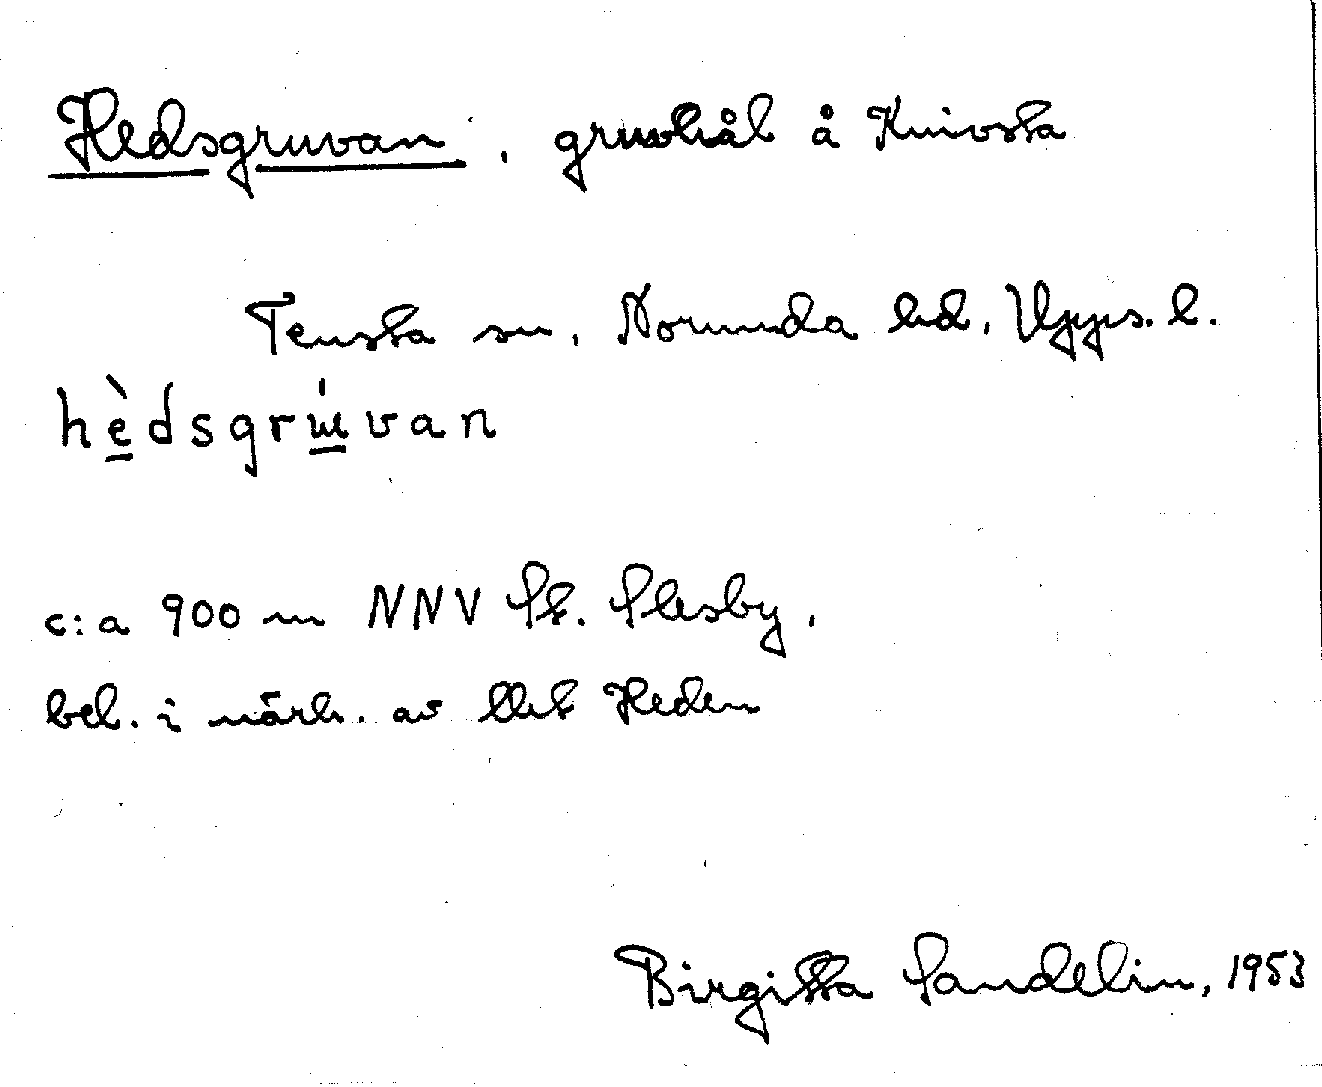 Hedsgruvan, gruvhål å Knivsta
Tensta sn, Norunda hd, Upps. l.
hèdsgrʉ̍van
c:a 900 m NNV St. Slesby,
bel. i närh. av Heden
Birgitta Sandelin, 1953